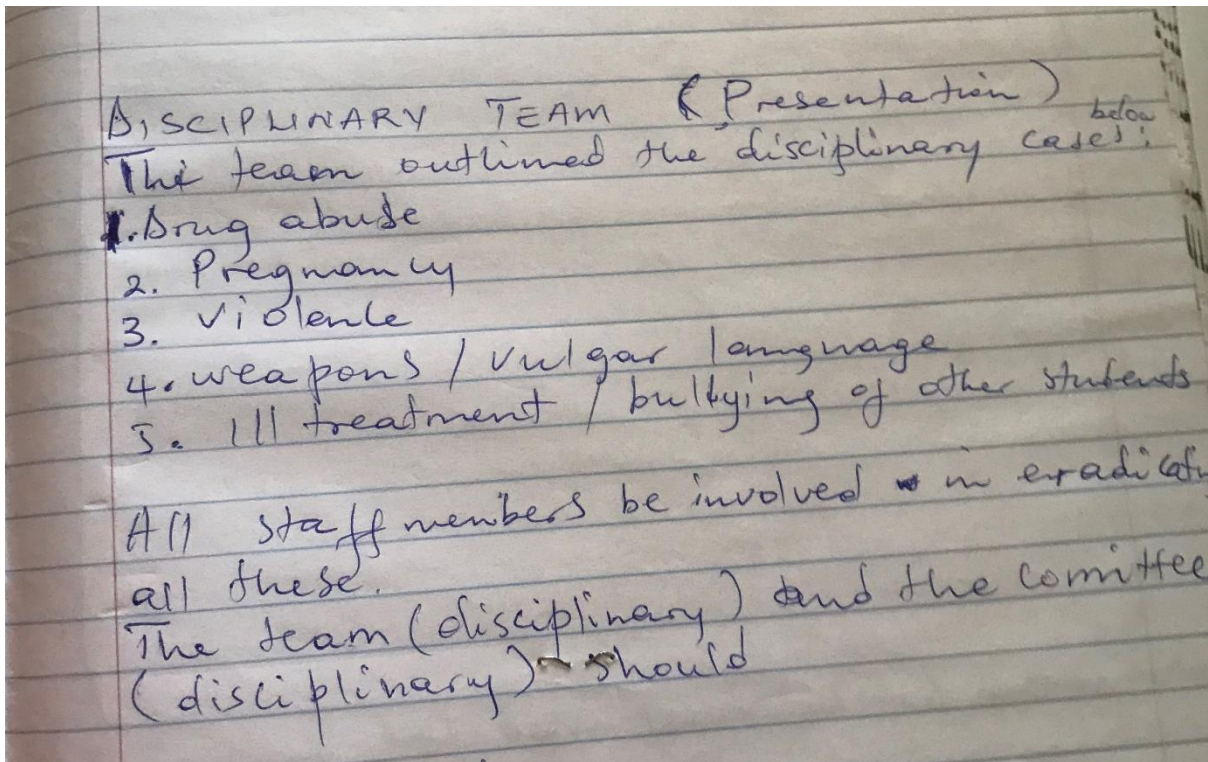 DISCIPLINARY TEAM (Presentation)
The team outlined the disciplinary cases below:
1. Drug abuse
2. Pregnancy
3. Violence
4. weapons / vulgar language
5. Ill treatment / bullying of other students
All staff members be involved in eradicatin
all these.
The team (disciplinary) and the comittee
(disciplinary) should